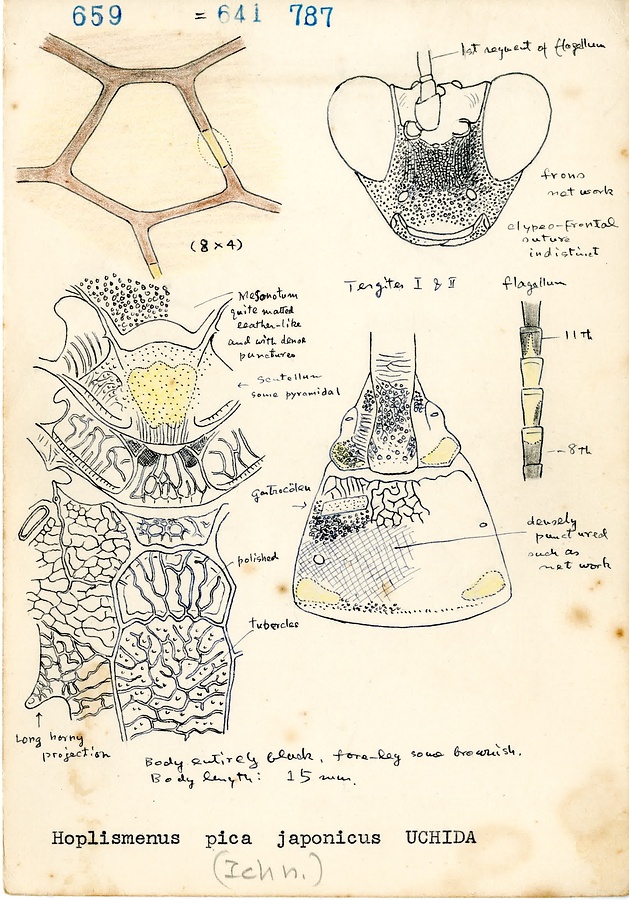 659 = 641 787
1st segment of flagellum
frons
net work
clypeo-frontal
suture
indistinct
(8 × 4)
Mesonotum
quite matted
leather-like
and with dense
punctures
Tergites I & II
flagellum
11 th
← Scutellum
some pyramidal
8 th
gastrocölen
densely
punctured
such as
net work
polished
tubercles
Long horny
projection
Body entirely black, fore-leg some brownish.
Body length: 15 mm.
Hoplismenus pica japonicus UCHIDA
(Ichn.)